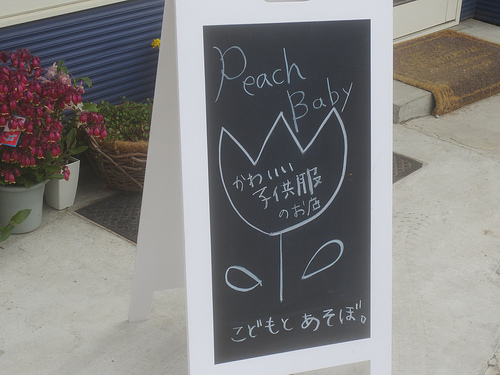 Peach
Baby
かわいい
子供服
のお店
こどもと あそぼ。